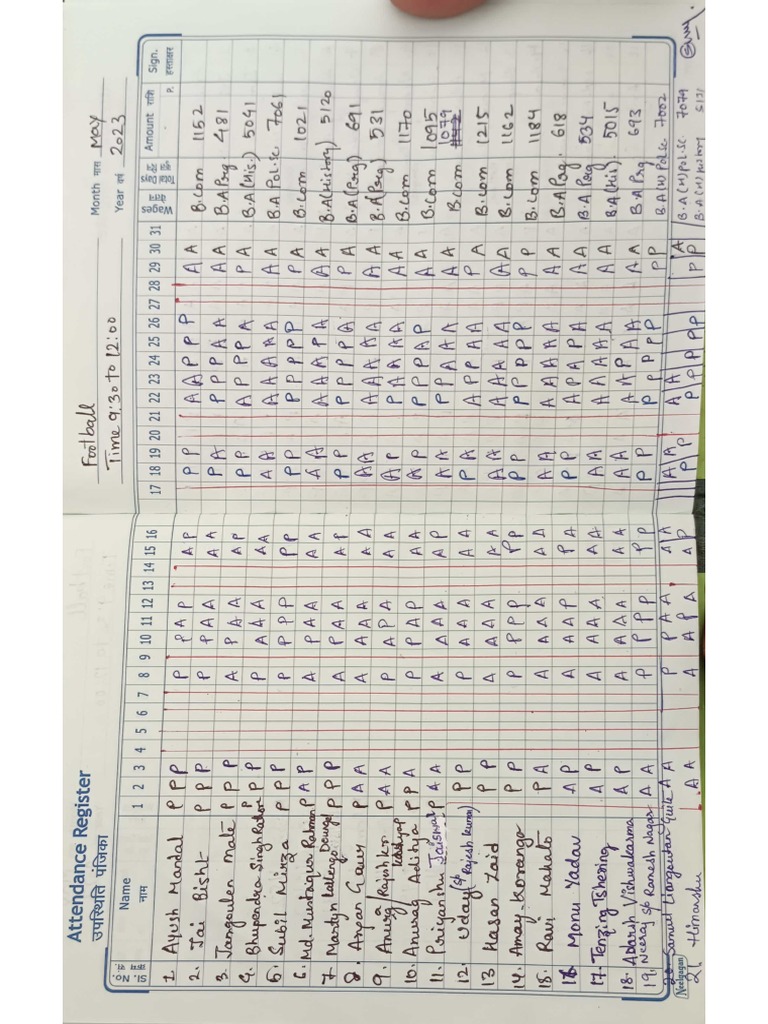 Football
Month मास May
Attendance Register
उपस्थिति पंजिका
Time 9:30 to 12:00
Year वर्ष 2023
Sl. No. क्रम सं. Name नाम 1 2 3 4 5 6 7 8 9 10 11 12 13 14 15 16 17 18 19 20 21 22 23 24 25 26 27 28 29 30 31 Wages Amount राशि P. Sign. हस्ताक्षर
1. Ayush Mandal P P P P P A P A P P P A A P P P A A B.Com 1152
2. Jai Bisht P P P P P A A A A P A P P P A A A A B.A Prg 481
3. Jangoulen Mate P P P A P A A A P P P A P P P A P A B.A (His.) 5041
4. Bhupendra Singh Rathor P P P P A A A A A A A A A A A A A A B.A Pol.Sc. 7061
5. Subil Mirza P P P P P P P P P P P P P P P P P A B.Com 1021
6. Md. Mustaqur Rahman P A P A P A A A A A A A A A P A A A B.A(History) 5120
7. Martyn Lallengo Doungel P P P A P A A A P P P P P P P A P A B.A(Prog) 691
8. Arpan Gaur P A A A A A A A A A A A A A A A A A B.A(Prg) 531
9. Anurag/Rajesh kr Kashyap P A A P A P A A A A P P A A A A A A B.Com 1170
10. Anurag Aditya P P A P P A P A A A P P P P A P A A B.Com 1095
11. Priyanshu Jaiswal P A A A A A A A P A A P P A A A A A B.Com 1079
12. Uday (S/o Rajesh Kumar) P P P A A A A A P A A P P A A P A B.Com 1215
13 Hasan Zaid P P A A A A A A A A A A A A A A A B.Com 1162
14. Amay Koranga P P P P P P P P P P P P P P P P P B.Com 1184
15. Ravi Mahato P A A A A A A A A A A A A A A A A B.A Prg. 618
16 Monu Yadav A P A A A P P A P P A P A P A A A B.A Prg 534
17. Tenzing Tshering A P A A A A A A A A A A A A A A A B.A(His) 5015
18. Adarsh Vishwakarma A P A A A A A A A A A A P A A A A B.A Prg 693
19. Neeraj s/o Ramesh Nagar A A P P P P P P P P P P P P P P P B.A(H) Pol Sc 7002
20. Samuel Guite A A P P A A A A B.A(H) Pol.Sc 7079
21. Himanshu A A A A P A A P B.A(H) History 5131
Neelgagan